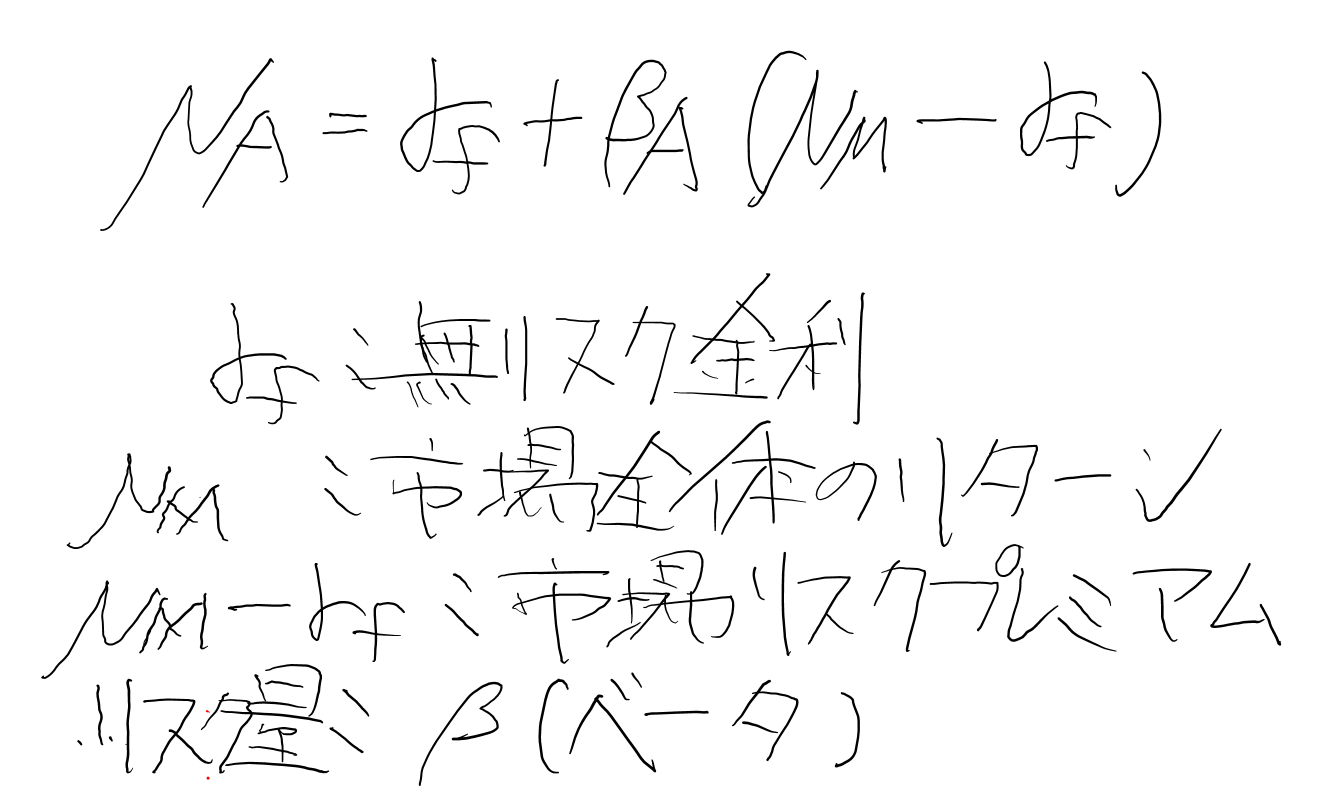 μA = rf + βA (μM − rf)
rf : 無リスク金利
μM : 市場全体のリターン
μM − rf : 市場リスクプレミアム
リスク量 : β (ベータ)